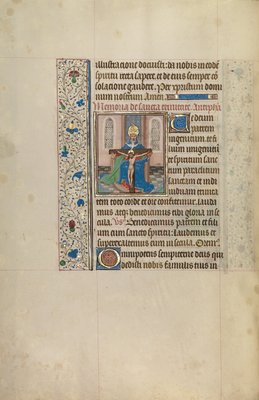 illustracione docuisti: da nobis in eodē
spiritu recta sapere, et de eius semper cō
solacione gaudere. Per xpristum domi
num nostrum Amen
Memoria de sancta trinitate. Antiphō
Te deum
patrem
ingenitum et fi
lium unigeni
et spiritum sanc
tum paraclitum
sanctam et indi
uiduam trinita
tem toto corde et ore confitemur. lauda
mus atqȝ benedicimus tibi gloria in se
cula. Vs Benedicamus patrem et fili
um cum sancto spiritu: laudemus et
superexaltemus eum in secula. Orem9.
Omnipotens sempiterne deus qui
dedisti nobis famulis tuis in